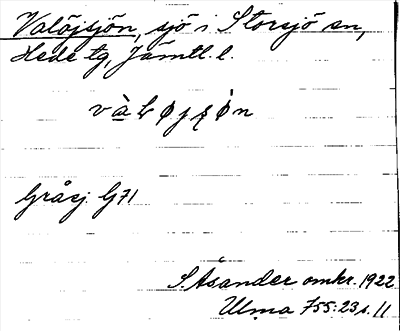 Valöjsjön, sjö i Storsjö sn,
Hede tg, Jämtl. l.
Gråsj. G71
S. Åsander omkr. 1922
Ulma 755:23 s. 11